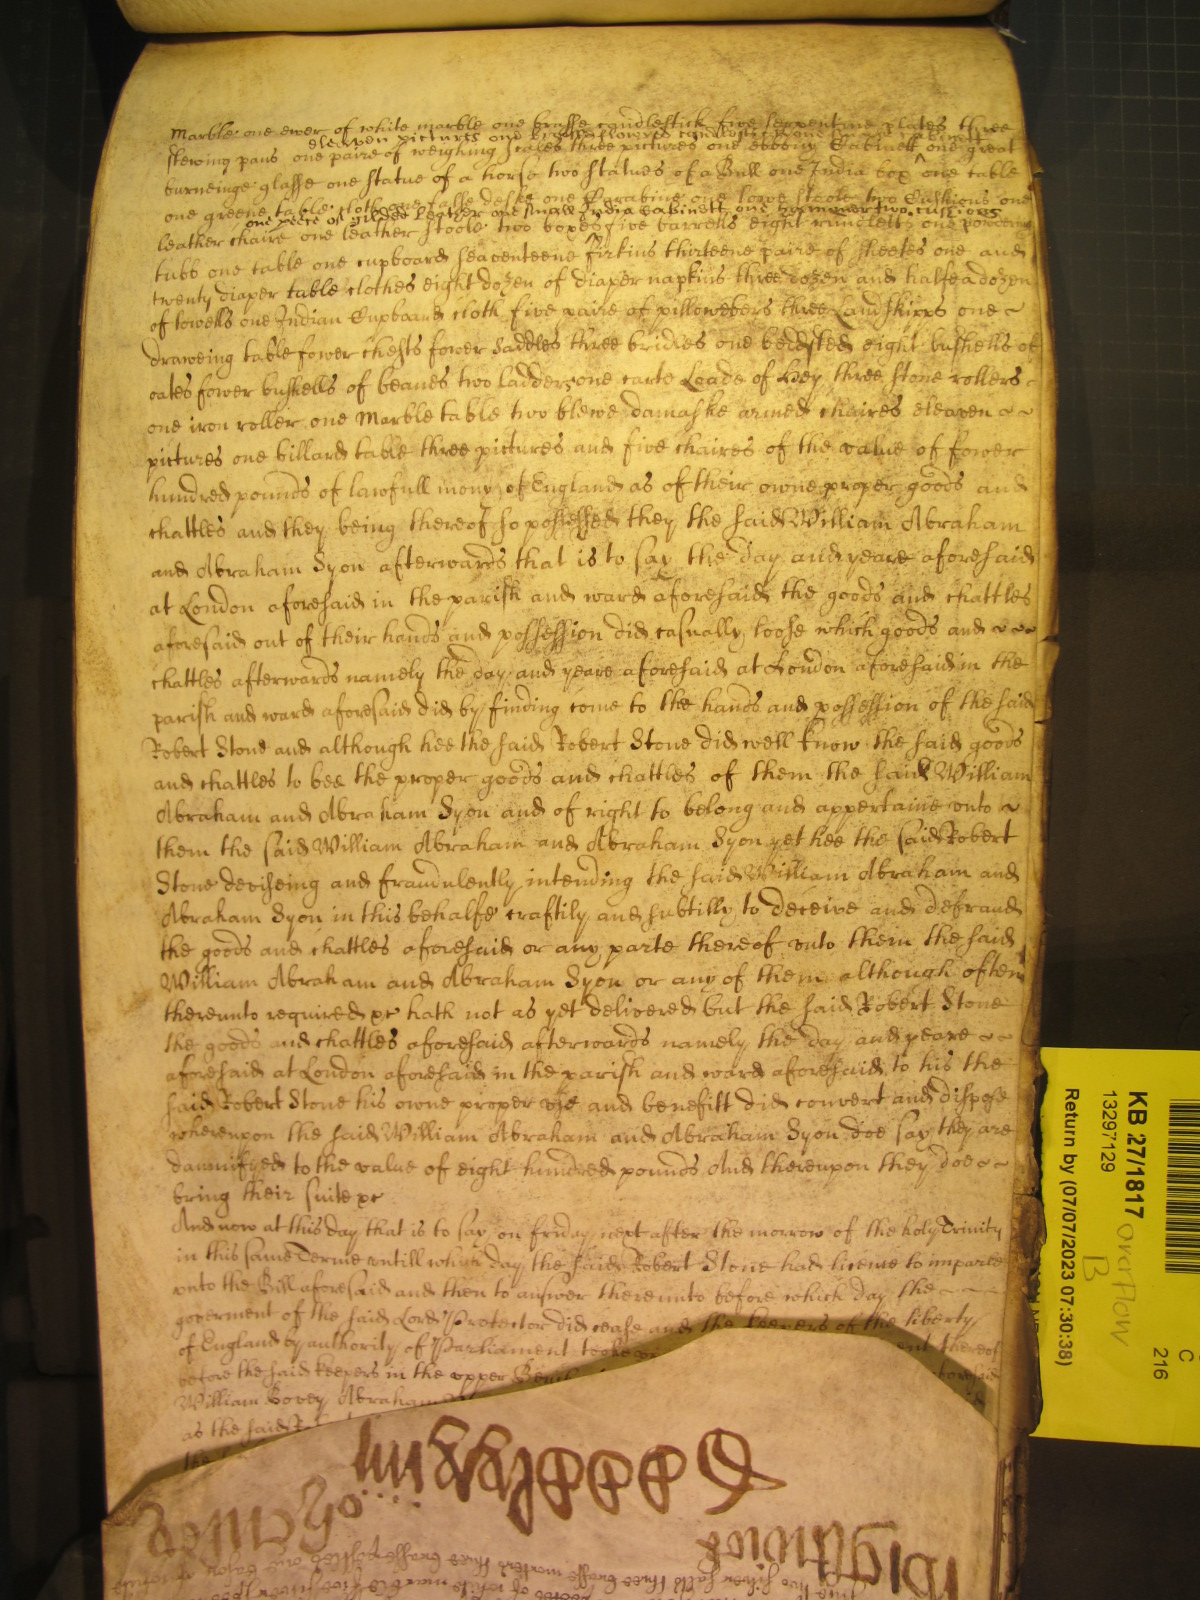 Marble one ewer of white marble one brasse candlestick five serpentine plates three
eleaven pictures one
skewing pans one paire of weighing scales three pictures one ebbony Cabinett one great
burneinge glasse one statue of a horse two statues of a Bull one India box one table
one greene table cloth one desk one one stoole two Cushions one
one piece of gilded leather one small India Cabinett one two cussions
leather chaire one leather stoole two boxes five barrells eight rundletts one powdering
tubb one table one cupboard seaventeene firkins thirteene paire of sheetes one and
twenty diaper table clothes eight dozen of diaper napkins three dozen and halfe a dozen
of towells one Indian Cupboard cloth five paire of pillowebers three Landskipps one
draweing table fower chests fower saddles three bridles one bedsted eight bushells of
oates fower bushells of beanes two ladders one carte Loade of Hey three stone rollers
one iron roller one Marble table two blewe damaske armed chaires eleaven
pictures one billard table three pictures and five chaires of the value of fower
hundred pounds of lawfull mony of England as of their owne proper goods and
chattles and they being thereof so possessed they the said William Abraham
and Abraham Syon afterwards that is to say the day and yeare aforesaid
at London aforesaid in the parish and ward aforesaid the goods and chattles
aforesaid out of their hands and possession did casually loose which goods and
chattles afterwards namely the day and yeare aforesaid at London aforesaid in the
parish and ward aforesaid did by finding come to the hands and possession of the said
Robert Stone and although hee the said Robert Stone did well know the said goods
and chattles to bee the proper goods and chattles of them the said William
Abraham and Abraham Syon and of right to belong and appertaine unto
them the said William Abraham and Abraham Syon yet hee the said Robert
Stone deviseing and fraudulently intending the said William Abraham and
Abraham Syon in this behalfe craftily and subtilly to deceive and defraud
the goods and chattles aforesaid or any parte thereof unto them the said
William Abraham and Abraham Syon or any of them although often
thereunto required &c hath not as yet delivered but the said Robert Stone
the goods and chattles aforesaid afterwards namely the day and yeare
aforesaid at London aforesaid in the parish and ward aforesaid to his the
said Robert Stone his owne proper use and benefitt did convert and dispose
whereupon the said William Abraham and Abraham Syon doe say they are
damnifyed to the value of eight hundred pounds And thereupon they doe
bring their suite &c
And now at this day that is to say on friday next after the morrow of the holy Trinity
in this same Terme untill which day the said Robert Stone had licence to imparle
unto the Bill aforesaid and then to answer thereunto before which day the
goverment of the said Lord Protector did cease and the keepers of the liberty
of England by authority of Parliament tooke thereof
before the said keepers in the upper Bench aforesaid
William Abraham
as the said
the
KB 27/1817
13297129
Return by (07/07/2023 07:30:38)
overflow
B
C
216